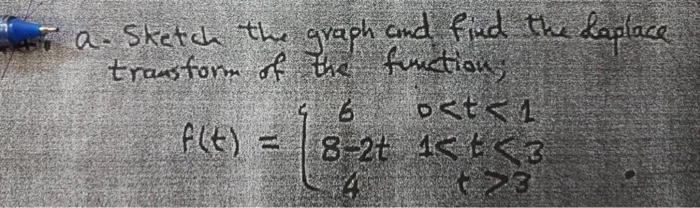 a- Sketch the graph and find the Laplace
transform of the function;
f(t) = { 6 0<t<1
8-2t 1<t<3
4 t>3